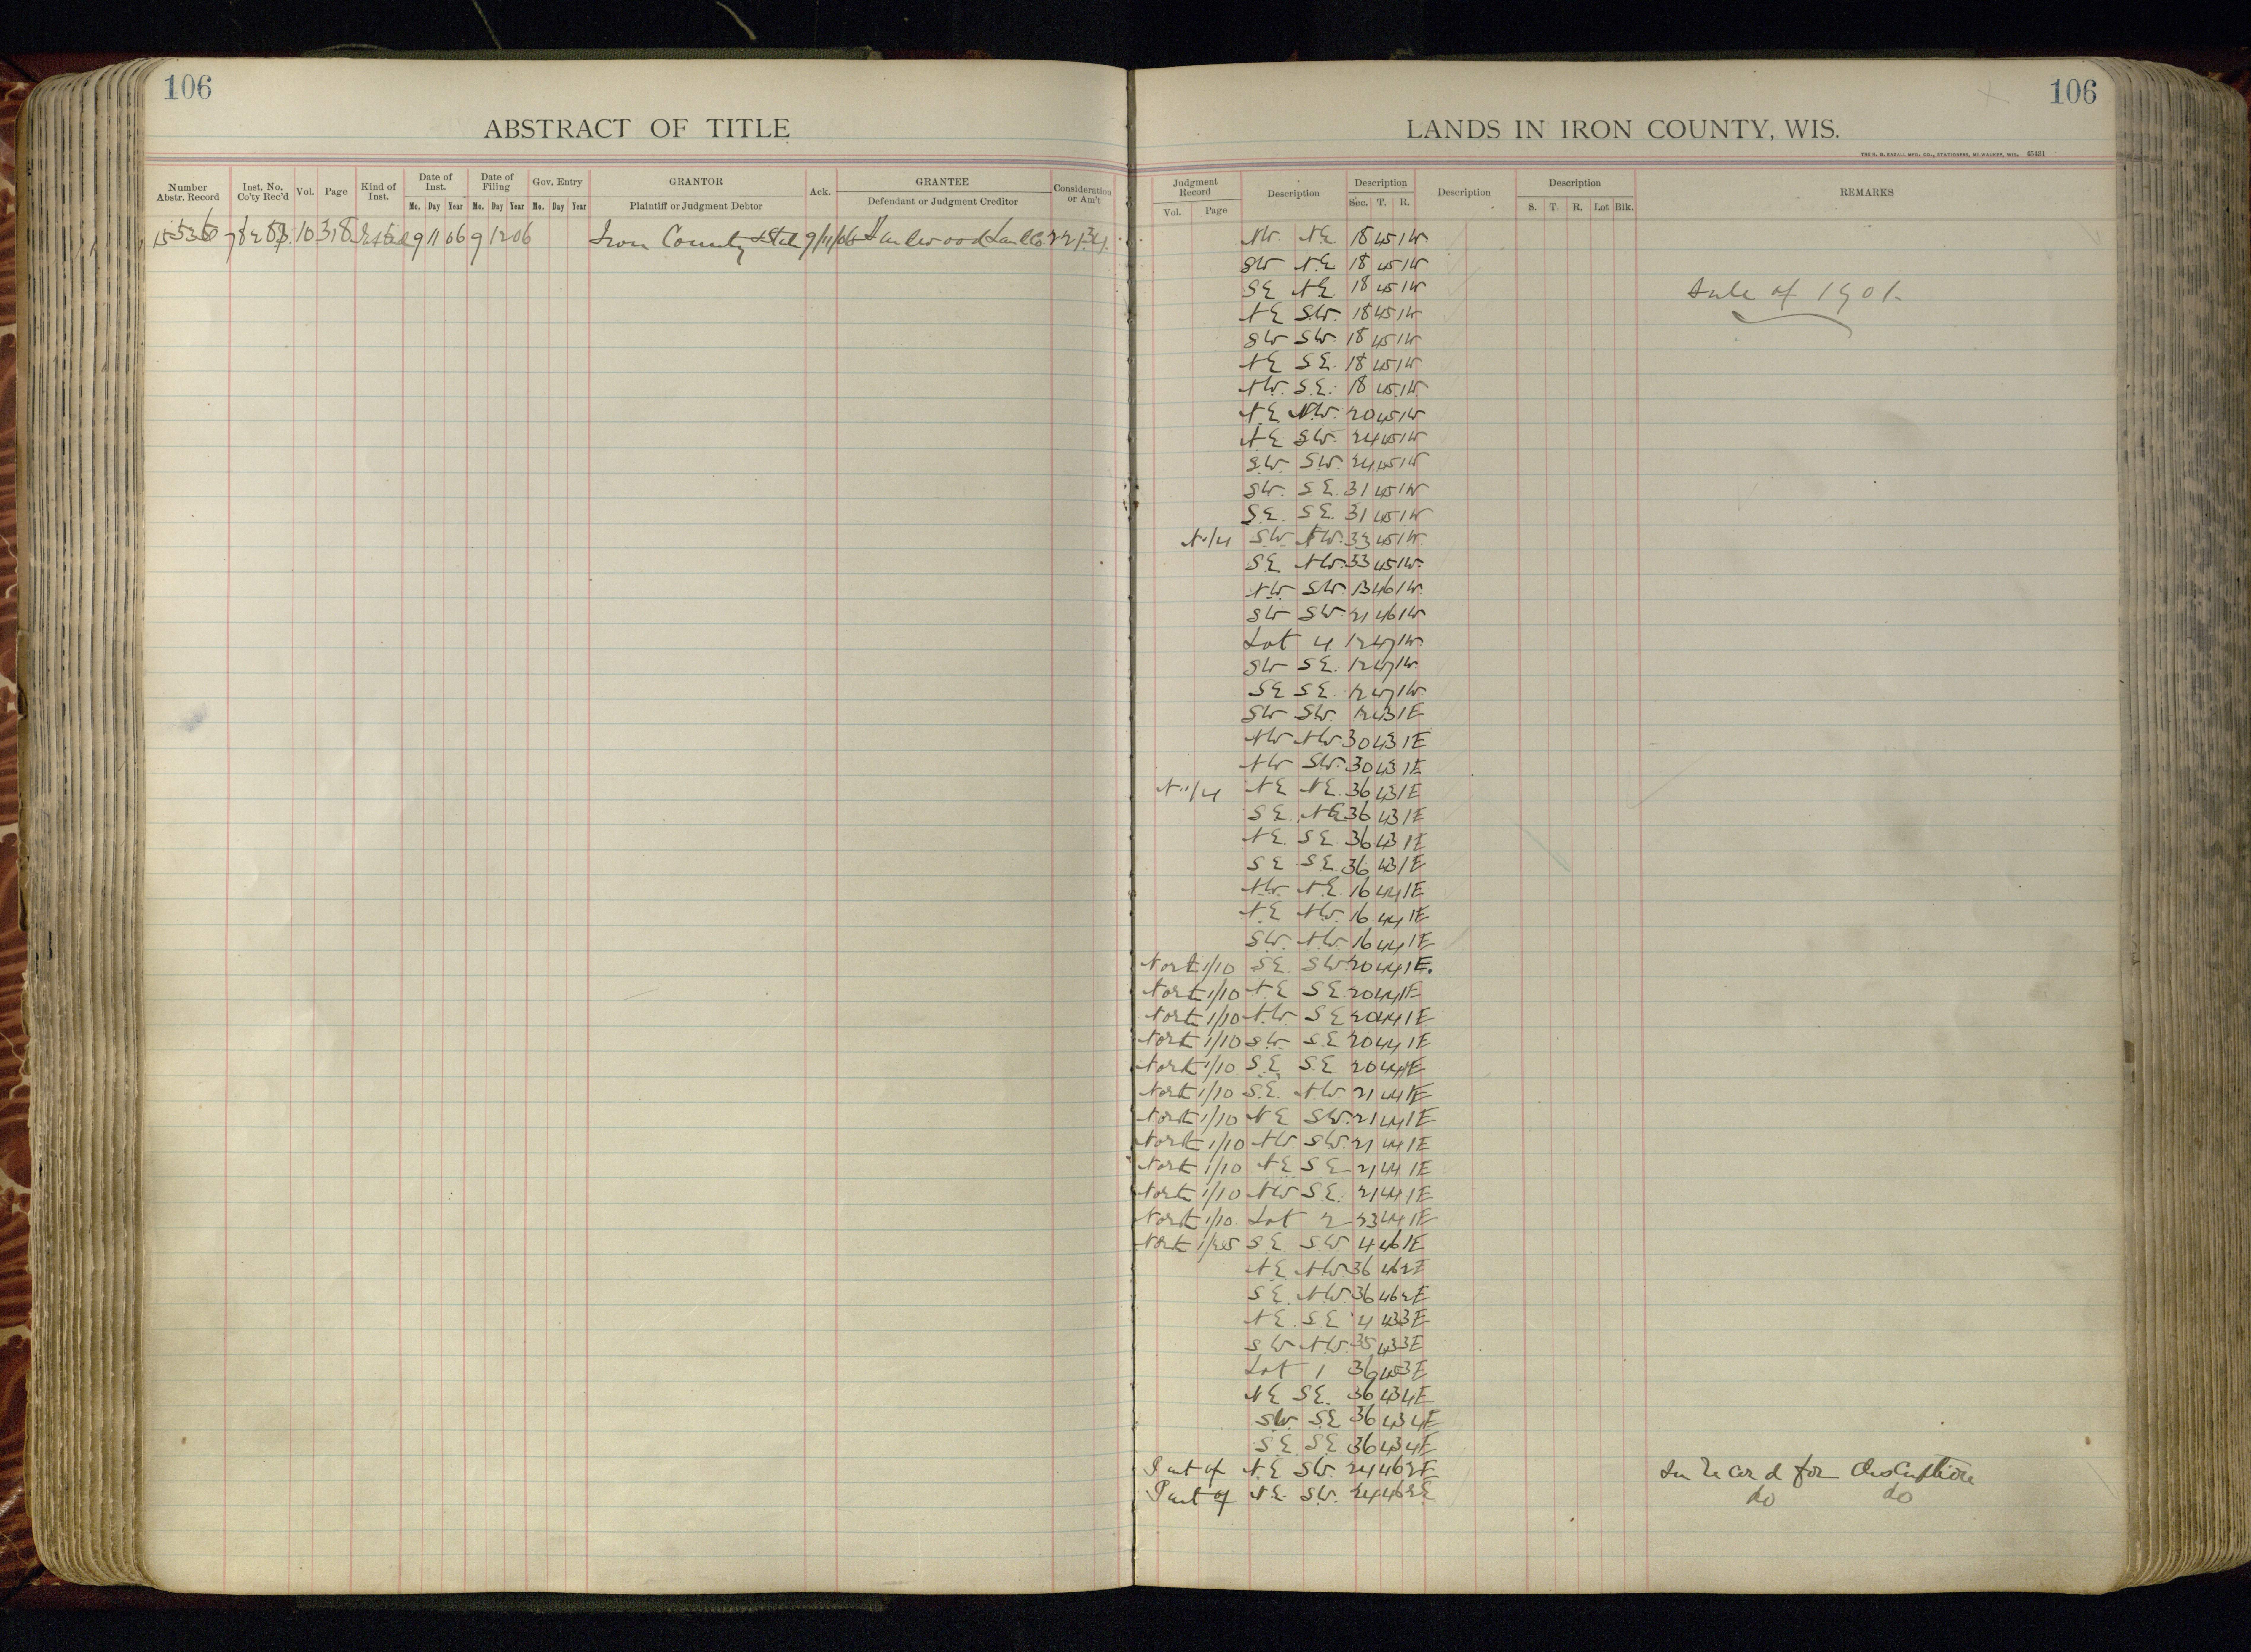 106
ABSTRACT OF TITLE
Number Abstr. Record Inst. No. Co'ty Rec'd Vol. Page Kind of Inst. Date of Inst. Date of Filing Gov. Entry GRANTOR Ack. GRANTEE Consideration or Am't
Mo. Day Year Mo. Day Year Mo. Day Year Plaintiff or Judgment Debtor Defendant or Judgment Creditor
10 318 9 11 06 9 12 06 Iron County & State 9/11/06 Land Co
106
LANDS IN IRON COUNTY, WIS.
Judgment Record Description Description Description Description REMARKS
Vol. Page Sec. T. R. S. T. R. Lot Blk.
NW. NE. 18 45 1W
SW NE 18 45 1W
SE NE. 18 45 1W
Sale of 1901.
NE SW. 18 45 1W
SW SW. 18 45 1W
NE SE. 18 45 1W
NW. SE. 18 45 1W.
NE NW. 20 45 1W
NE SW. 24 45 1W
S.W. SW. 24 45 1W
SW. SE. 31 45 1W
SE. SE. 31 45 1W
N 1/4 SW NW. 33 45 1W.
SE NW. 33 45 1W.
NW SW. 13 46 1W.
SW SW 21 46 1W
Lot 4 12 47 1W.
SW SE. 12 47 1W.
SE SE. 12 47 1W.
SW SW. 12 43 1E
NW NW 30 43 1E
NW SW. 30 43 1E
N 1/4 NE NE. 36 43 1E
SE. NE 36 43 1E
NE. SE. 36 43 1E
SE SE 36 43 1E
NW. NE. 16 44 1E
NE NW. 16 44 1E
SW. NW. 16 44 1E
North 1/10 SE. SW. 20 44 1E.
North 1/10 NE SE. 20 44 1E
North 1/10 NW. SE 20 44 1E
North 1/10 SW SE 20 44 1E
North 1/10 SE SE 20 44 1E
North 1/10 SE. NW. 21 44 1E
North 1/10 NE SW. 21 44 1E
North 1/10 NW. SW. 21 44 1E
North 1/10 NE SE 21 44 1E
North 1/10 NW SE. 21 44 1E
North 1/10. Lot 2 23 44 1E
North SE SW 4 46 1E
NE NW. 36 46 2E
SE NW. 36 46 2E
NE. SE 4 43 3E
SW NW. 35 43 3E
Lot 1 36 3E
NE SE. 36 43 4E
SW. SE 36 43 4E
SE. SE. 36 43 4E
Part of NE SW. 24 46 2E Record for description
Part of NE. SW. 24 46 2E do do